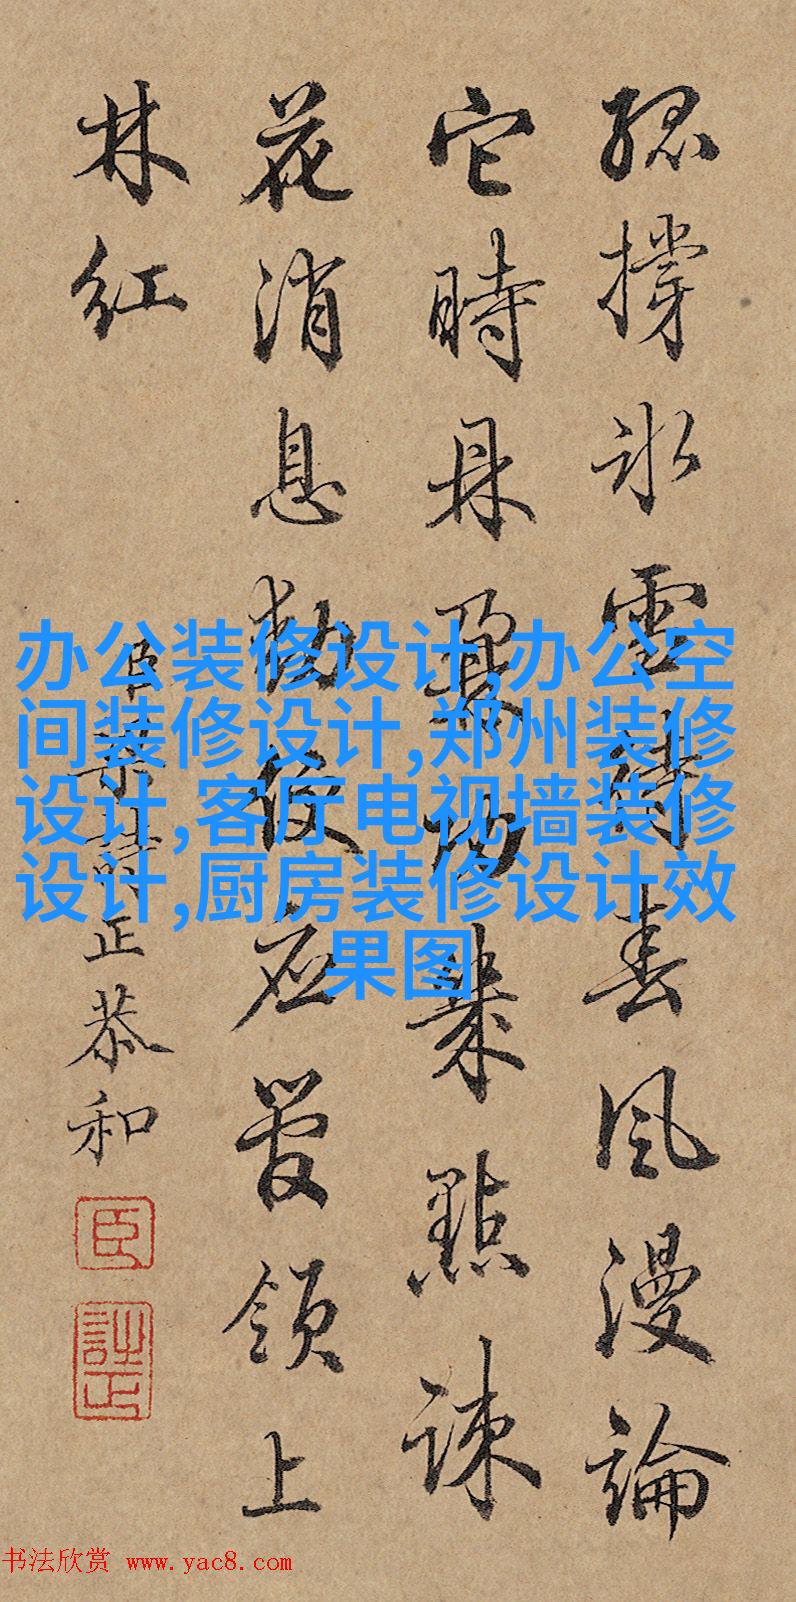 孤撐冰雪春風漫論
它時鼎鼐功幾點疎
花消息動應管領上
林紅
臣梁詩正恭和
臣
詩正
办公装修设计,办公空
间装修设计,郑州装修
设计,客厅电视墙装修
设计,厨房装修设计效
果图
书法欣赏 www.yac8.com